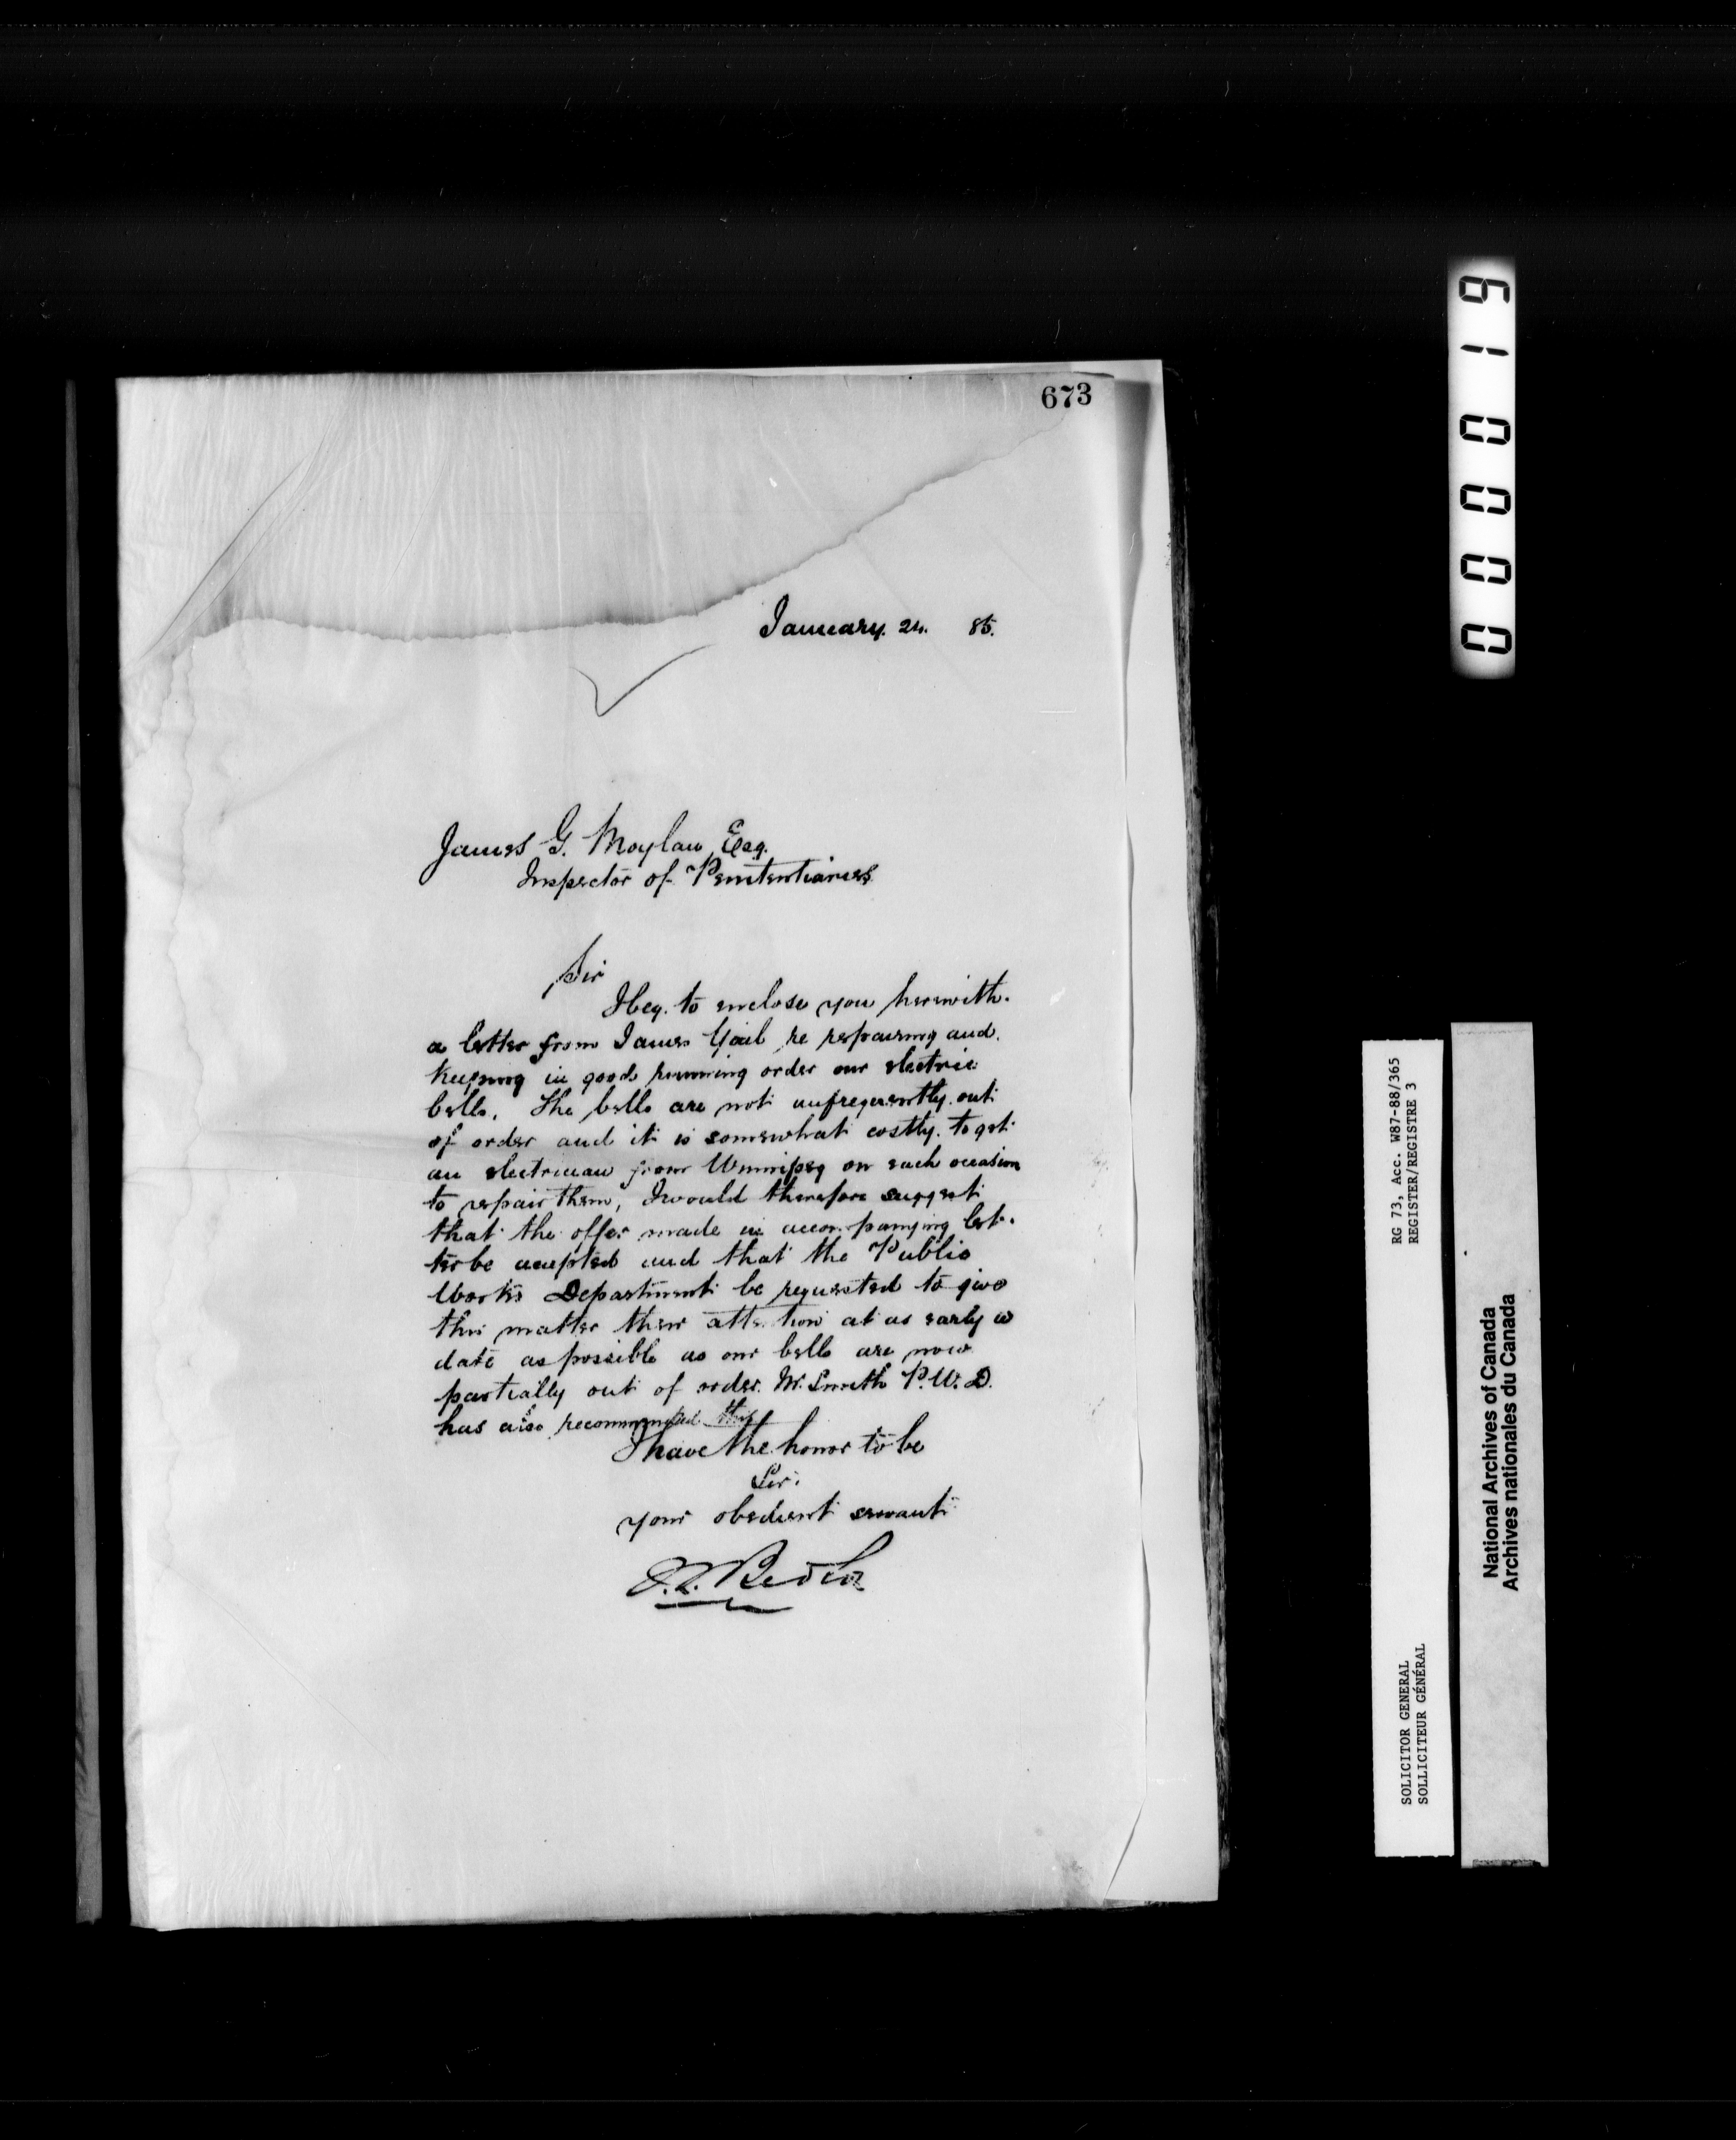 673
January. 24. 85.
James G. Moylan, Esq.
Inspector of Penitentiaries
Sir
I beg. to enclose you herewith.
a letter from James Yail re repairing and.
Keeping in good running order our electric
bells. The bells are not unfrequently out
of order and it is somewhat costly. to get
an electrician from Winnipeg on such occasion
to repair them, I would therefore suggest
that the offer made in accompanying let-
ter be accepted and that the Public
Works Department be requested to give
this matter their attention at as early a
date as possible as our bells are now
partially out of order. Mr. Smith P.W.D.
has also recommended this
I have the honor to be
Sir.
your obedient servant
S.L. Bedson
000019
RG 73, Acc. W87-88/365
REGISTER/REGISTRE 3
SOLICITOR GENERAL
SOLLICITEUR GÉNÉRAL
National Archives of Canada
Archives nationales du Canada